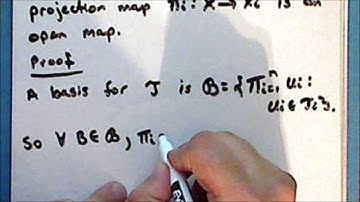 projection map πᵢ: X → Xᵢ is an
open map.
Proof
A basis for J is B = { Πᵢ₌₁ⁿ Uᵢ :
Uᵢ ∈ Jᵢ }.
So ∀ B ∈ B, πᵢ